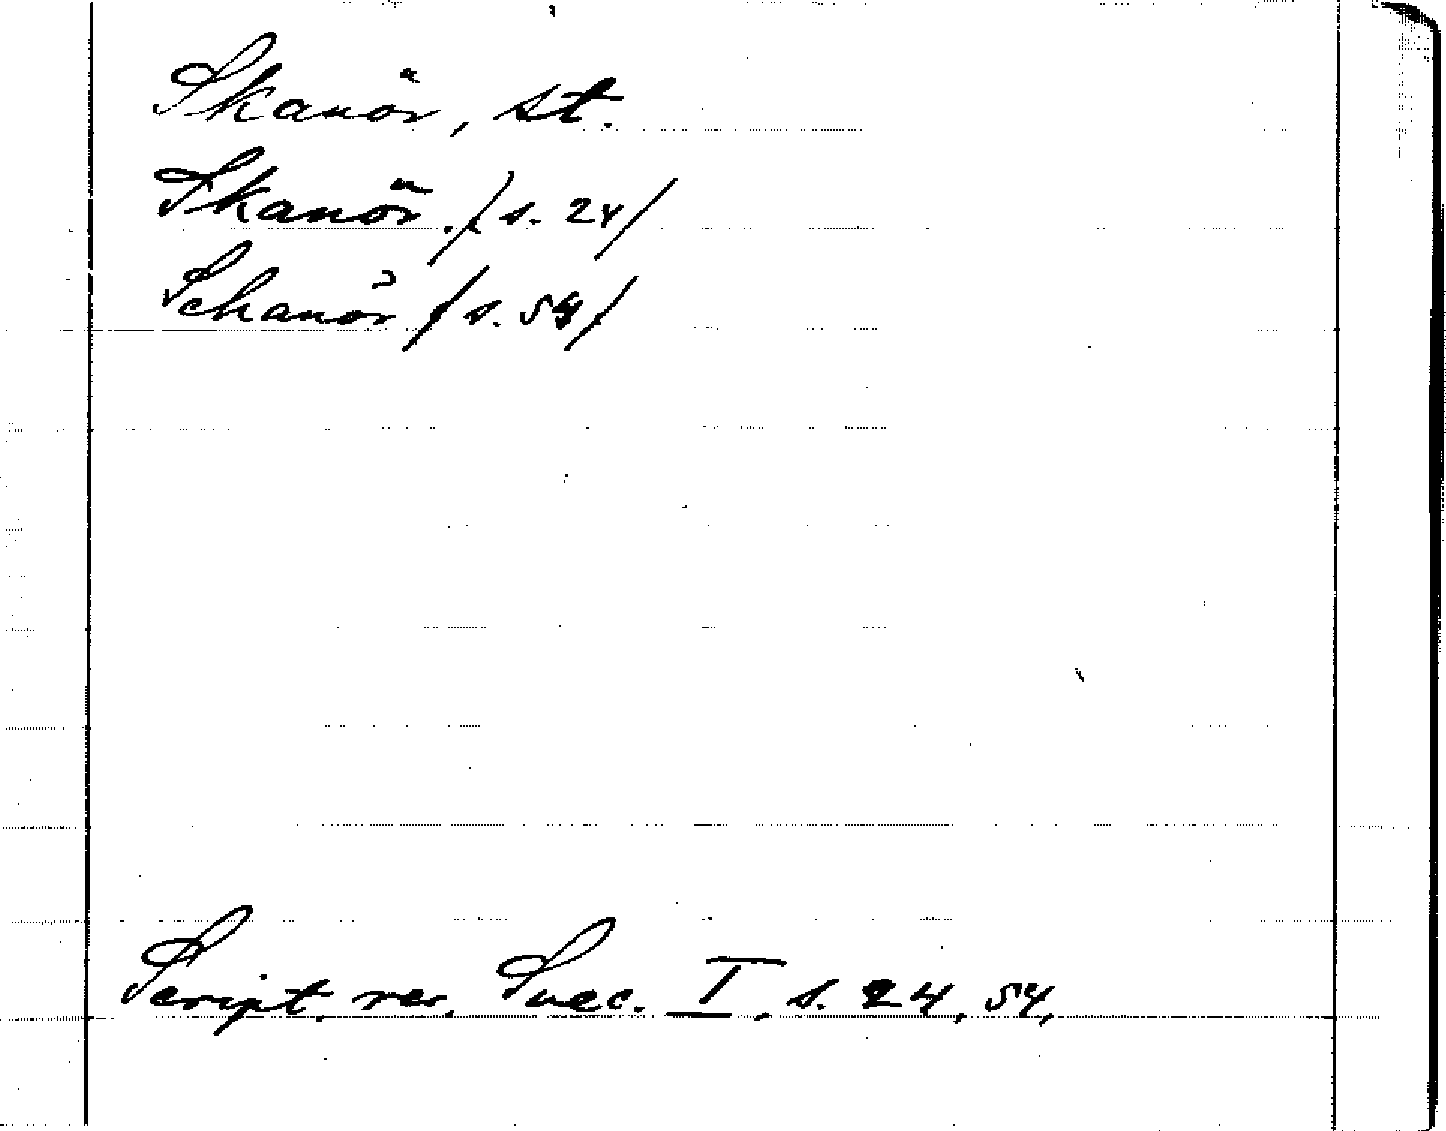 Skanör, st.
Skanör. /s. 24/
Schanör /s. 54/
Script. rer. Suec. I, s. 24, 54,